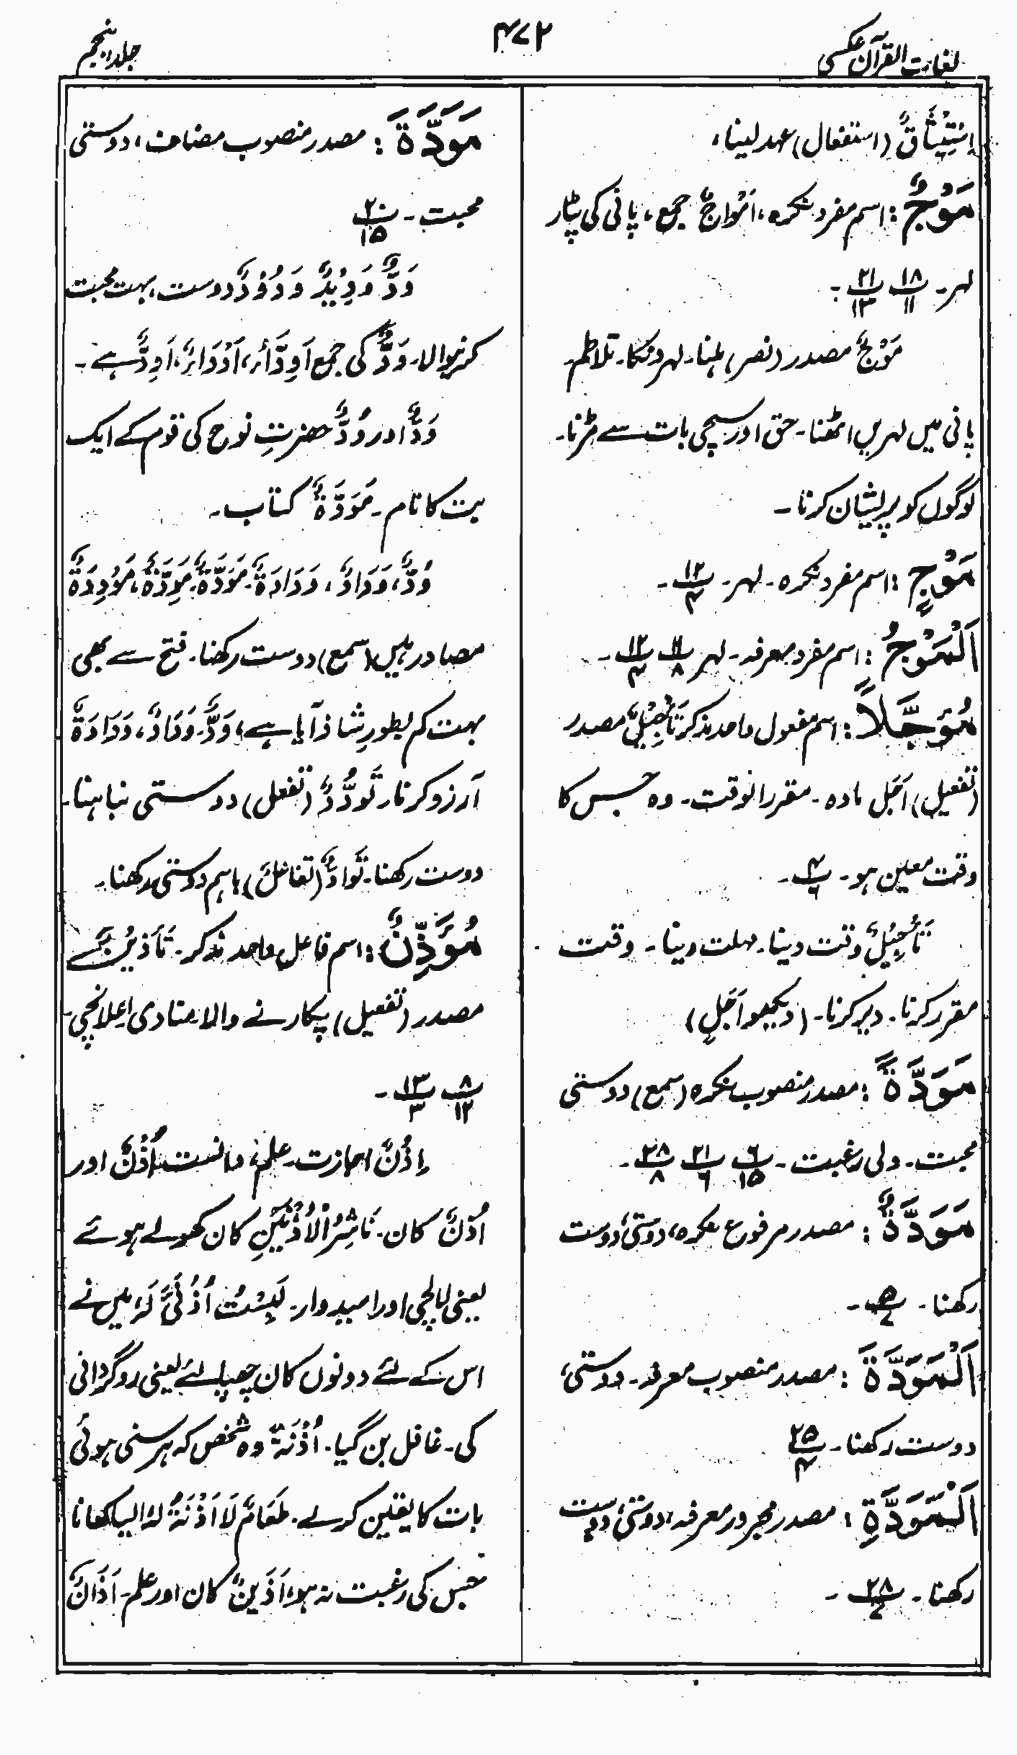 لغات القرآن عکسی
۴۷۲
جلد پنجم
اِسْتِيْثَاقٌ (استفعال) عہد لینا،
مَوْجٌ : اسم مفرد نکرہ، اَمْوَاجٌ جمع، پانی کی پٹار
لہر۔ ۱۸/۱۱ ۲۱/۱۳ ۔
مَوْجٌ مصدر (نصر) ہلنا۔ لہر دنکا۔ تلاطم۔
پانی میں لہریں اٹھنا۔ حق اور سچی بات سے مڑنا۔
لوگوں کو پریشان کرنا۔
مَوْجٍ : اسم مفرد نکرہ۔ لہر۔ ۱۲/۴ ۔
اَلْمَوْجُ : اسم مفرد معرفہ۔ لہر ۱۱/۸ ۱۲/۴ ۔
مُؤَجَّلًا : اسم مفعول واحد مذکر تَأْجِيْلٌ مصدر
(تفعیل) اَجَل مادہ۔ مقرر الوقت۔ وہ جس کا
وقت معین ہو۔ ۴/۶ ۔
تَأْجِيْلٌ وقت دینا۔ مہلت دینا۔ وقت
مقرر کرنا۔ دیر کرنا۔ (دیکھو اَجَلٍ)
مَوَدَّةً : مصدر منصوب نکرہ (سمع) دوستی
محبت۔ دلی رغبت۔ ۶/۱۵ ۲۱/۶ ۲۸/۸ ۔
مَوَدَّةٌ : مصدر مرفوع نکرہ، دوستی، دوست
رکھنا۔ ۵/۷ ۔
اَلْمَوَدَّةَ : مصدر منصوب معرفہ۔ دوستی،
دوست رکھنا۔ ۲۵/۴
اَلْمَوَدَّةِ : مصدر مجرور معرفہ، دوستی، دوست
رکھنا۔ ۲۸/۷ ۔
مَوَدَّةَ : مصدر منصوب مضاف، دوستی
محبت۔ ۲۰/۱۵
وَدٌّ وَدِيْدٌ وَدُوْدٌ دوست، بہت محبت
کرنیوالا۔ وَدٌّ کی جمع اَوِدَّاءُ، اَوْدَادٌ، اَوِدٌّ ہے۔
وَدٌّ اور وُدٌّ حضرتِ نوح کی قوم کے ایک
بت کا نام۔ مَوَدَّةٌ کتاب۔
وُدٌّ، وَدَادٌ، وَدَادَةٌ۔ مَوَدَّةٌ۔ مَوِدَّةٌ، مَوْدِدَةٌ
مصادر ہیں (سمع) دوست رکھنا۔ فتح سے بھی
بہت کم بطور شاذ آیا ہے، وَدٌّ۔ وَدَادٌ، وَدَادَةٌ
آرزو کرنا۔ تَوَدُّدٌ (تفعل) دوستی نباہنا۔
دوست رکھنا۔ تَوَادٌّ (تفاعل) باہم دوستی رکھنا۔
مُؤَذِّنٌ : اسم فاعل واحد مذکر۔ تَأْذِيْنٌ سے
مصدر (تفعیل) پکارنے والا منادی اعلانچی۔
۸/۱۲ ۱۳/۳ ۔
اِذْنٌ اجازت۔ علم، دانست۔ اُذْنٌ اور
اُذُنٌ کان۔ نَاشِرُ الْاُذُنَيْنِ کان کھولے ہوئے
یعنی لالچی اور امیدوار۔ لَبِسْتُ اُذُنَيَّ لَهٗ میں نے
اس کے لئے دونوں کان چھپا لئے یعنی روگردانی
کی۔ غافل بن گیا۔ اُذُنَةٌ وہ شخص کہ ہر سنی ہوئی
بات کا یقین کرلے۔ طَعَامٌ لَا اَذَنَةَ لَهٗ ایسا کھانا
جس کی رغبت نہ ہو، اَذِينٌ کان اور علم۔ اَذَانٌ